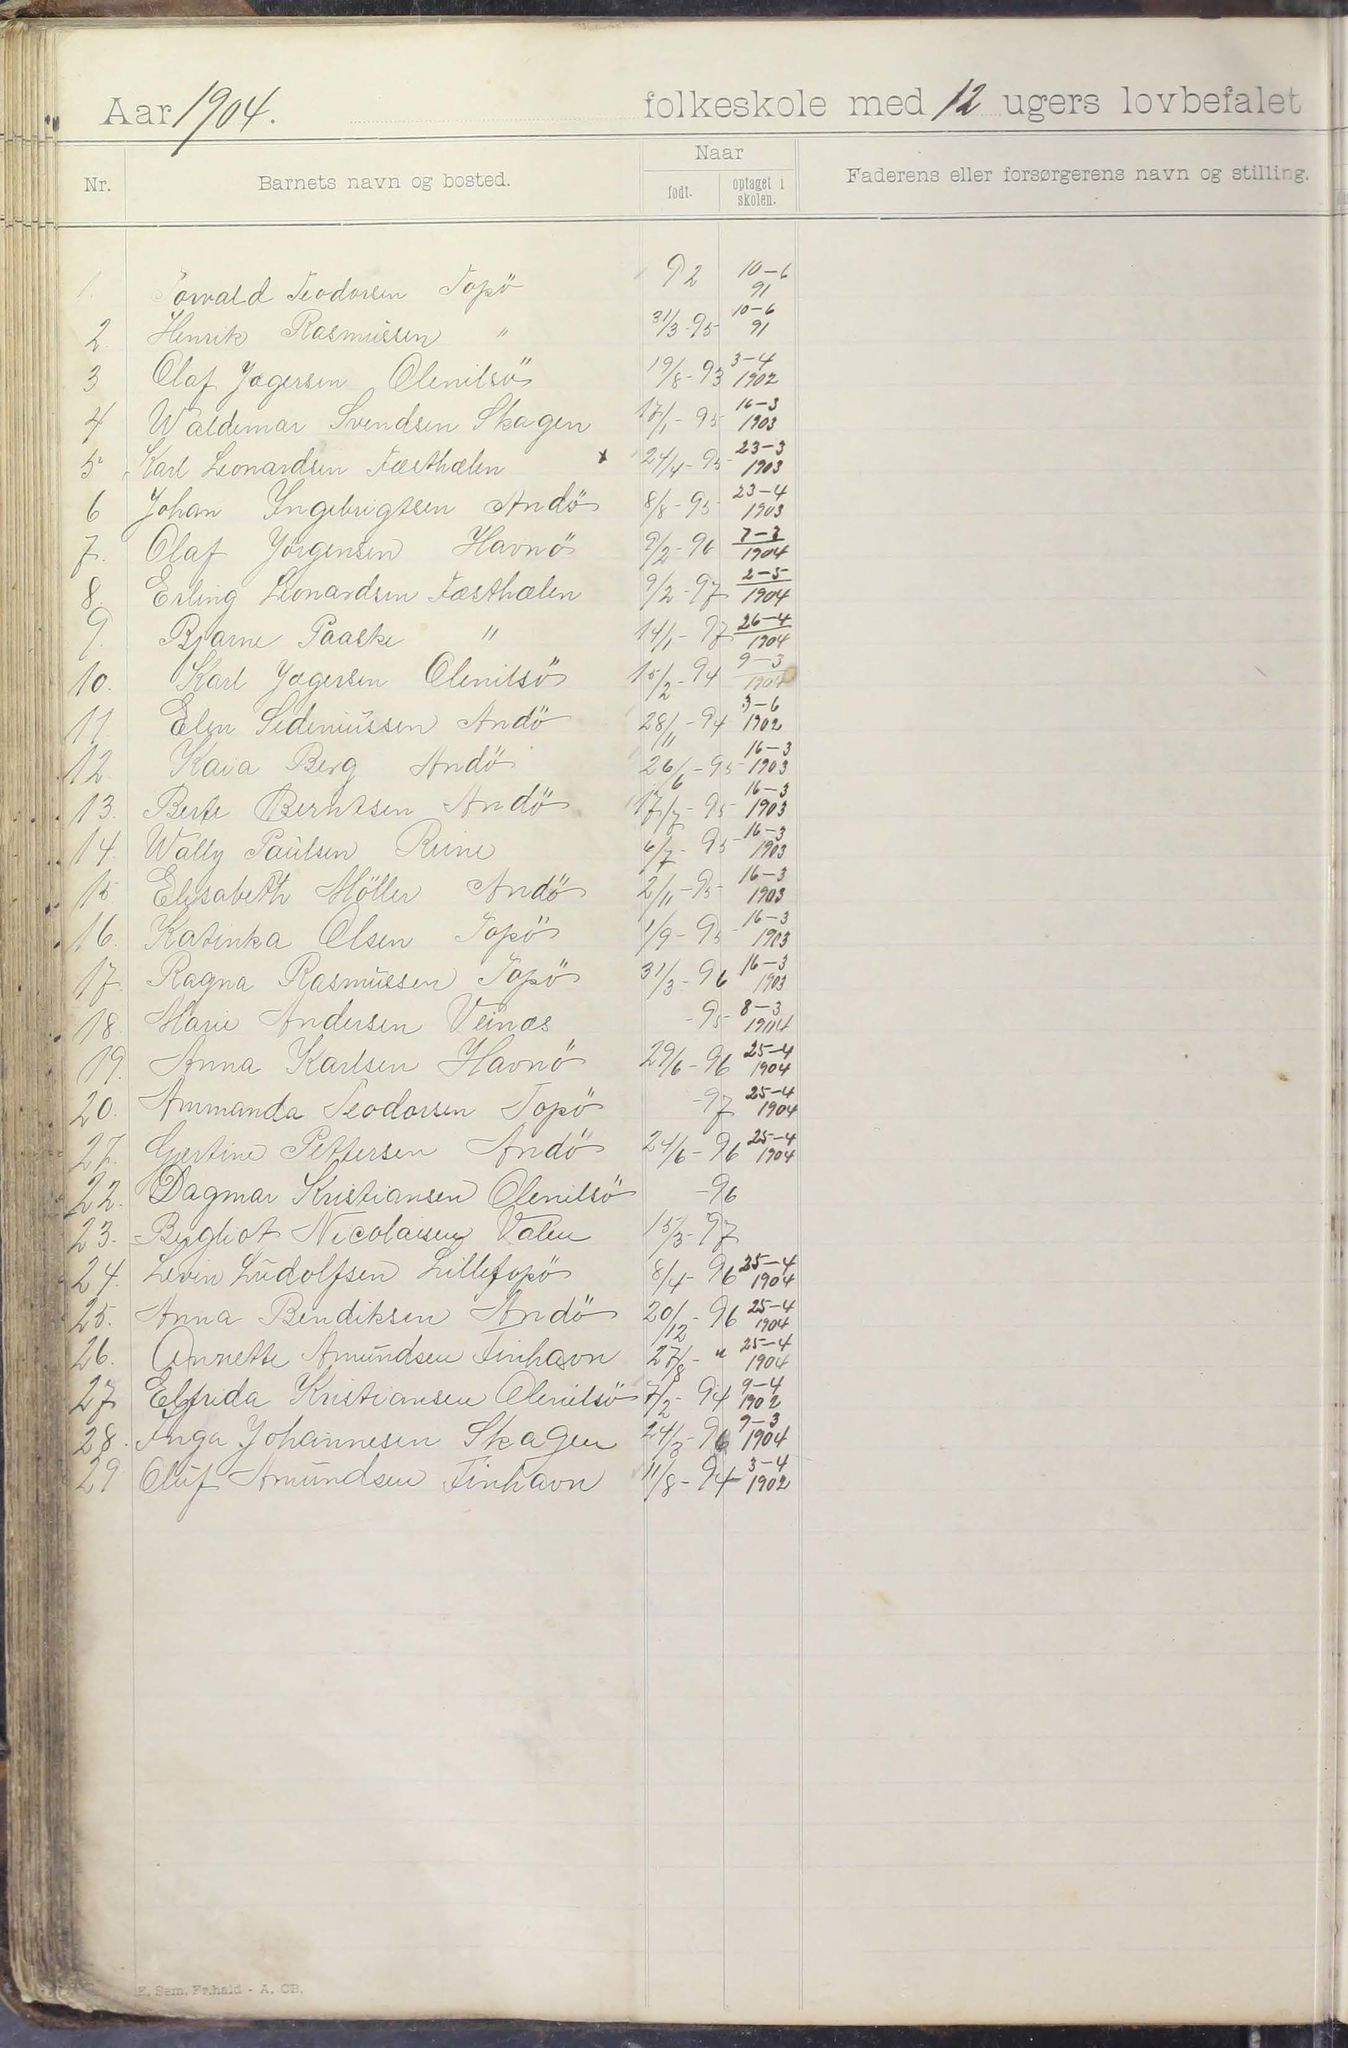 Aar 1904. folkeskole med 12 ugers lovbefalet
Nr. Barnets navn og bosted. Naar Faderens eller forsørgerens navn og stilling.
født. optaget i skolen.
1. Torvald Teodorsen Topö 92 10-6 91
2. Henrik Rasmussen " 31/3-95 10-6 91
3 Olaf Jægersen Olenilsö 19/8-93 3-4 1902
4 Waldemar Svendsen Skagen 17/1-95 16-3 1903
5 Karl Leonardsen Fæsthælen x 24/4-95 23-3 1903
6 Johan Ingebrigtsen Andö 8/8-95 23-4 1903
7. Olaf Jörgensen Havnö 9/2-96 7-3 1904
8. Erling Leonardsen Fæsthælen 9/2-97 2-5 1904
9. Bjarne Paaske " 14/1-97 26-4 1904
10. Karl Jægersen Olenilsö 15/2-94 9-3 1904
11. Elen Sedeniussen Andö 28/11-94 3-6 1902
12. Kaia Berg Andö 26/6-95 16-3 1903
13. Berte Berntsen Andö 17/7-95 16-3 1903
14. Wally Paulsen Reine 6/7-95 16-3 1903
15 Elisabeth Möller Andö 2/11-95 16-3 1903
16. Katinka Olsen Topö 1/9-95 16-3 1903
17. Ragna Rasmussen Topö 31/3-96 16-3 1903
18. Marie Andersen Veinæs -95 8-3 1904
19. Anna Karlsen Havnö 29/6-96 25-4 1904
20. Ammanda Teodorsen Topö -97 25-4 1904
21. Gjertine Pettersen Andö 24/6-96 25-4 1904
22. Dagmar Kristiansen Olenilsö -96
23. Bergliot Nicolaisen Valen 15/3-97
24. Ludolfsen Lilletopö 8/4-96 25-4 1904
25. Anna Bendiksen Andö 20/12-96 25-4 1904
26. Annette Amundsen Finhavn 27/8-" 25-4 1904
27 Elfrida Kristiansen Olenilsö 7/2-94 9-4 1902
28. Inga Johannesen Skagen 24/3-96 9-3 1904
29 Oluf Amundsen Finhavn 11/8-94 3-4 1902
E. Sem, Fr.hald - A. CB.